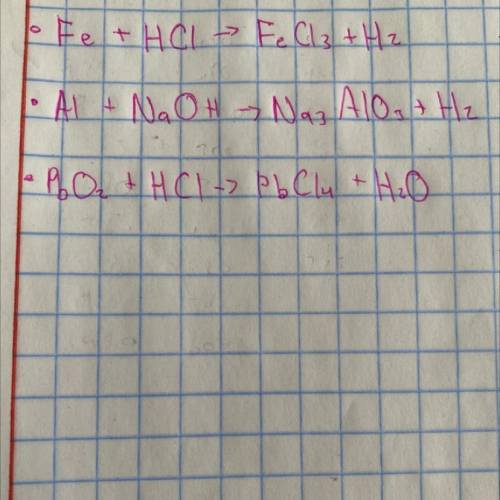 • Fe + HCl → FeCl3 + H2
• Al + NaOH → Na3AlO3 + H2
• PbO2 + HCl → PbCl4 + H2O